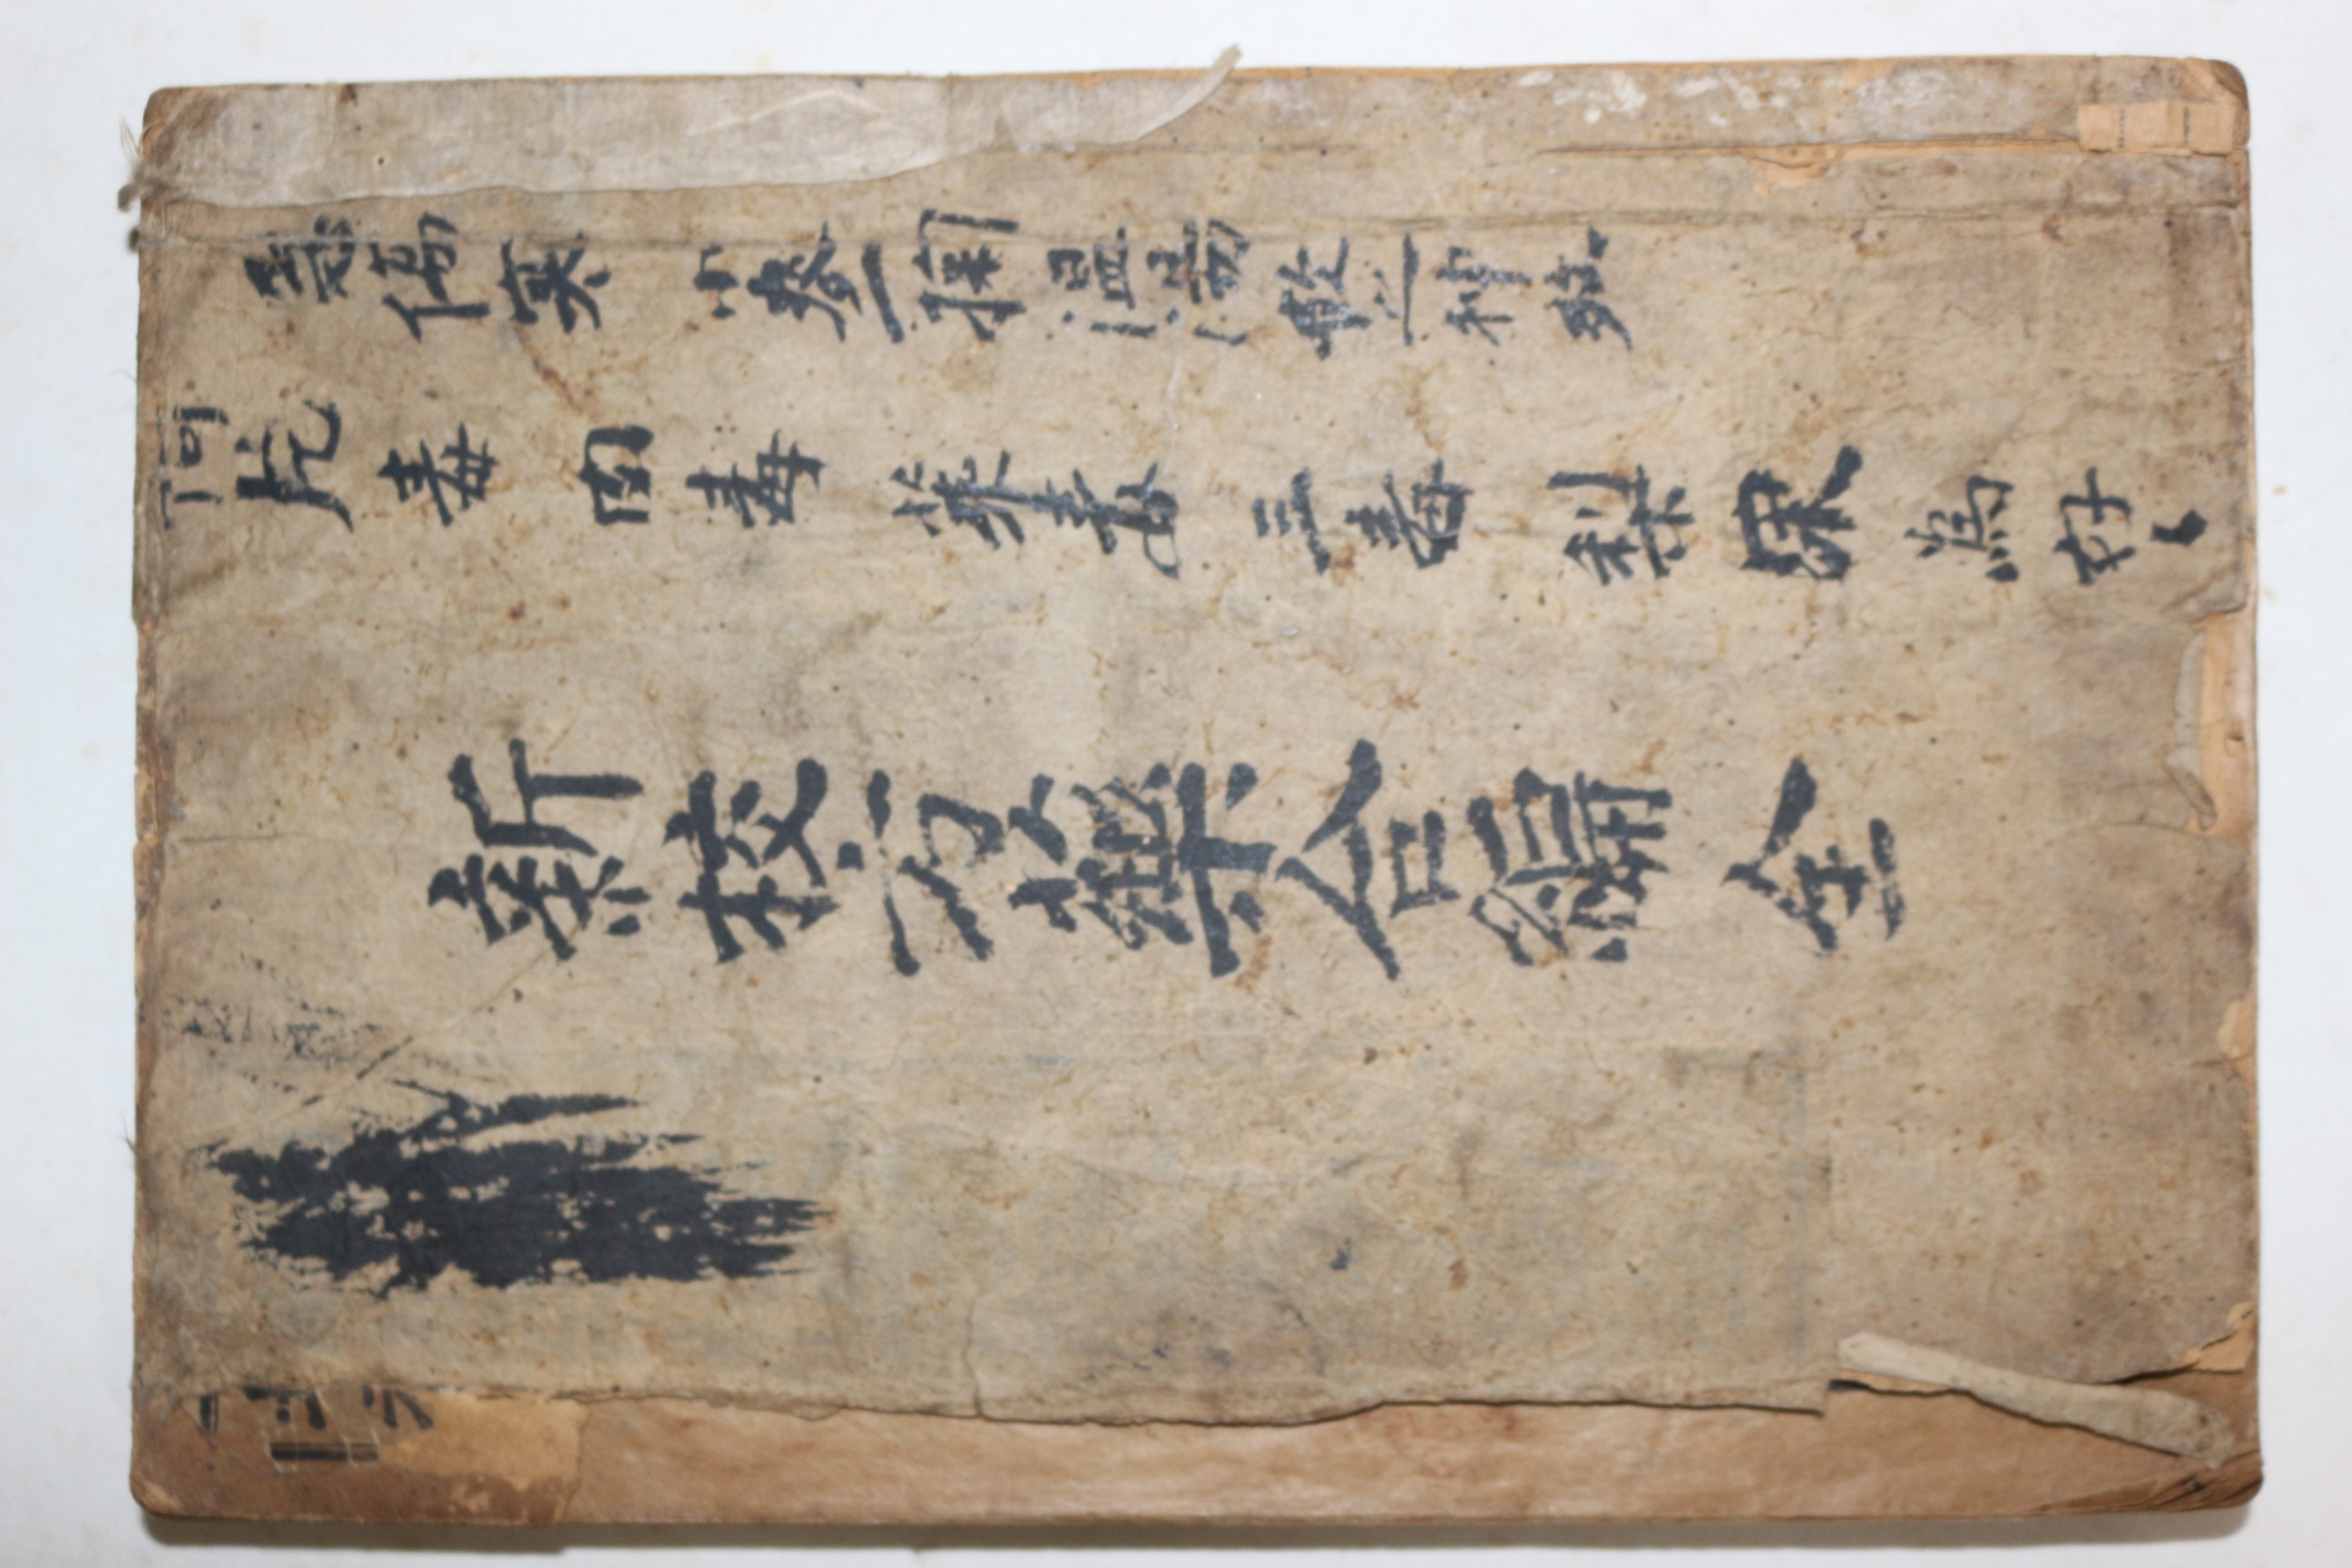 急傷寒 小麥一掬 温湯飲之神效
阿片毒 肉毒 菜毒 三毒 梨果為好々
新校方藥合編 全